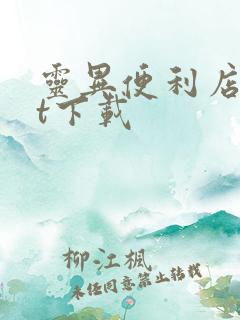 靈異便利店
t下載
柳江楓
未经同意禁止转载